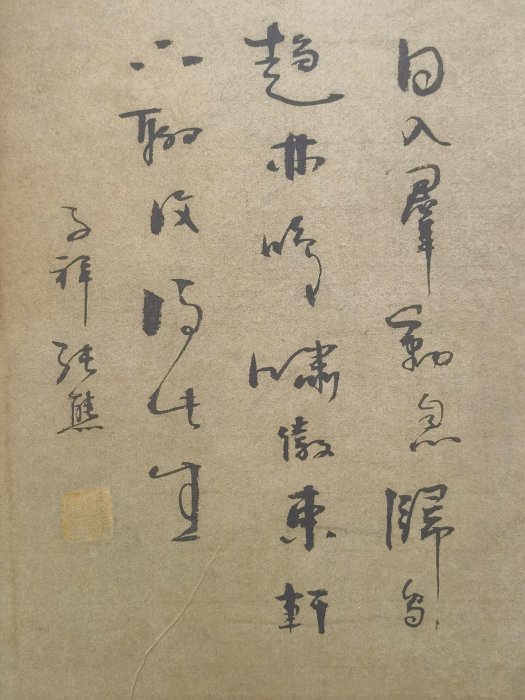 日入群動息歸鳥
趨林鳴嘯傲東軒
下聊復得此生
子祥張熊